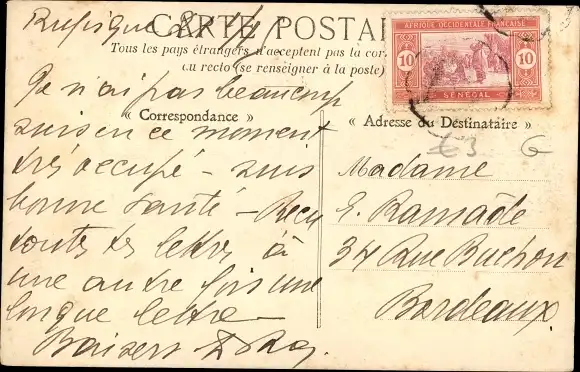 Rufisque
CARTE POSTAL
Tous les pays étrangers n'acceptent pas la cor
au recto (se renseigner à la poste)
AFRIQUE OCCIDENTALE FRANÇAISE
10 10
SÉNÉGAL
« Correspondance »
« Adresse du Destinataire »
€3 G
Je n'ai pas beaucoup
suis en ce moment
très occupé - suis
bonne santé - Reçu
toutes tes lettres à
une autre fois une
longue lettre -
Baisers
Madame
E. Ramade
34 Rue Buchon
Bordeaux